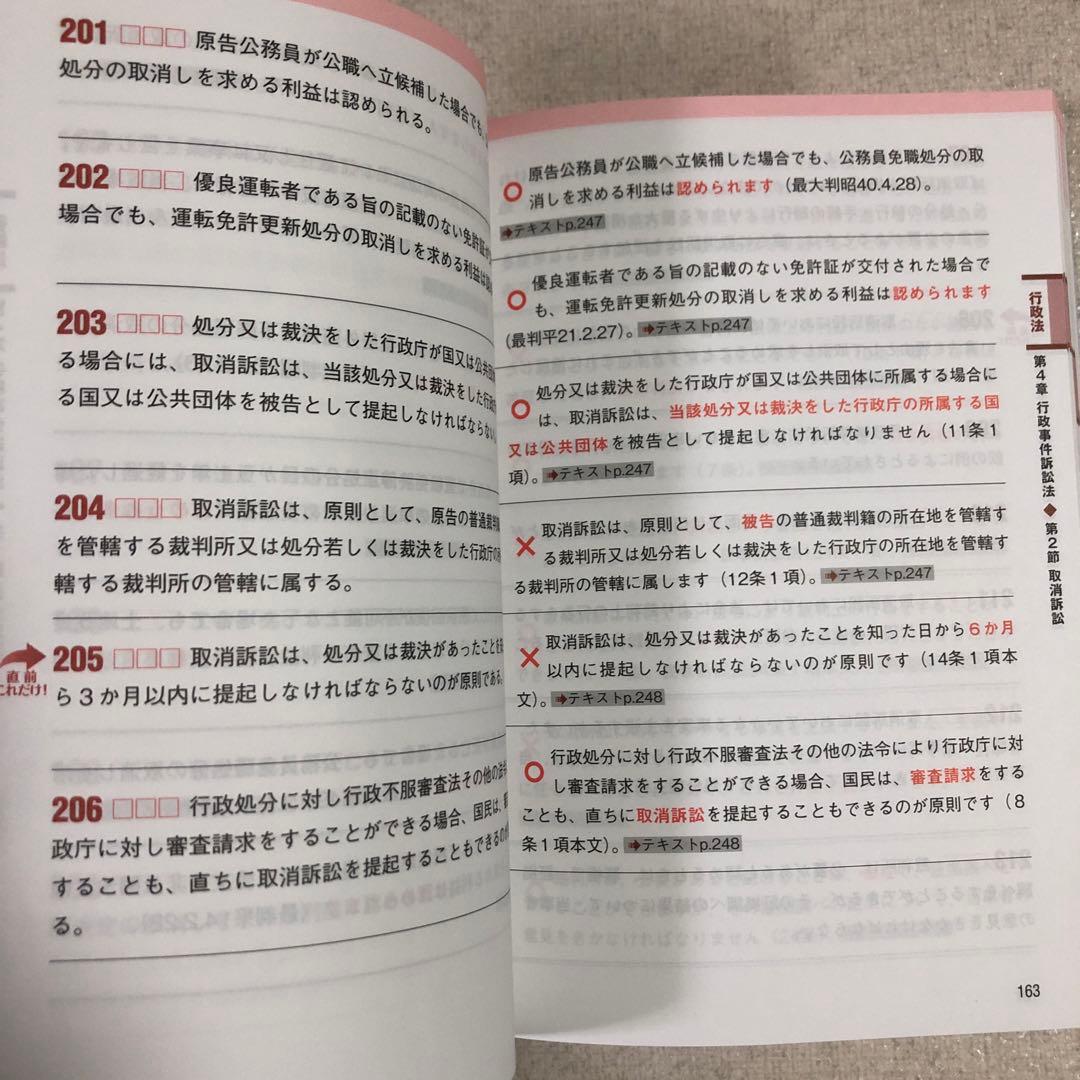 201 □□□ 原告公務員が公職へ立候補した場合でも、
処分の取消しを求める利益は認められる。
202 □□□ 優良運転者である旨の記載のない免許証が
場合でも、運転免許更新処分の取消しを求める利益は
203 □□□ 処分又は裁決をした行政庁が国又は公共団
る場合には、取消訴訟は、当該処分又は裁決をした行政
る国又は公共団体を被告として提起しなければならない
204 □□□ 取消訴訟は、原則として、原告の普通裁判
を管轄する裁判所又は処分若しくは裁決をした行政庁の
轄する裁判所の管轄に属する。
直前
これだけ!
205 □□□ 取消訴訟は、処分又は裁決があったことを
ら3か月以内に提起しなければならないのが原則である。
206 □□□ 行政処分に対し行政不服審査法その他の法
政庁に対し審査請求をすることができる場合、国民は、
することも、直ちに取消訴訟を提起することもできるのが
る。
○ 原告公務員が公職へ立候補した場合でも、公務員免職処分の取
消しを求める利益は認められます(最大判昭40.4.28)。
➡テキストp.247
○ 優良運転者である旨の記載のない免許証が交付された場合で
も、運転免許更新処分の取消しを求める利益は認められます
(最判平21.2.27)。➡テキストp.247
○ 処分又は裁決をした行政庁が国又は公共団体に所属する場合に
は、取消訴訟は、当該処分又は裁決をした行政庁の所属する国
又は公共団体を被告として提起しなければなりません(11条1
項)。➡テキストp.247
× 取消訴訟は、原則として、被告の普通裁判籍の所在地を管轄す
る裁判所又は処分若しくは裁決をした行政庁の所在地を管轄す
る裁判所の管轄に属します(12条1項)。➡テキストp.247
× 取消訴訟は、処分又は裁決があったことを知った日から6か月
以内に提起しなければならないのが原則です(14条1項本
文)。➡テキストp.248
○ 行政処分に対し行政不服審査法その他の法令により行政庁に対
し審査請求をすることができる場合、国民は、審査請求をする
ことも、直ちに取消訴訟を提起することもできるのが原則です(8
条1項本文)。➡テキストp.248
行政法
第4章 行政事件訴訟法◆第2節 取消訴訟
163